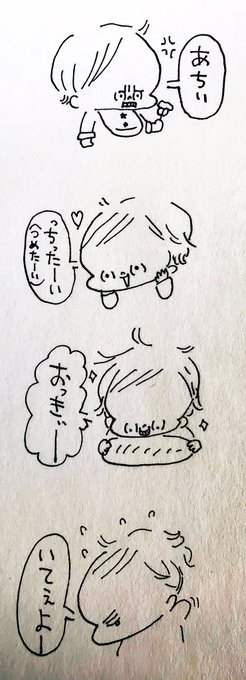 あちぃ
っちったーい
(つめたーい)
おっきぃー
いてぇよー